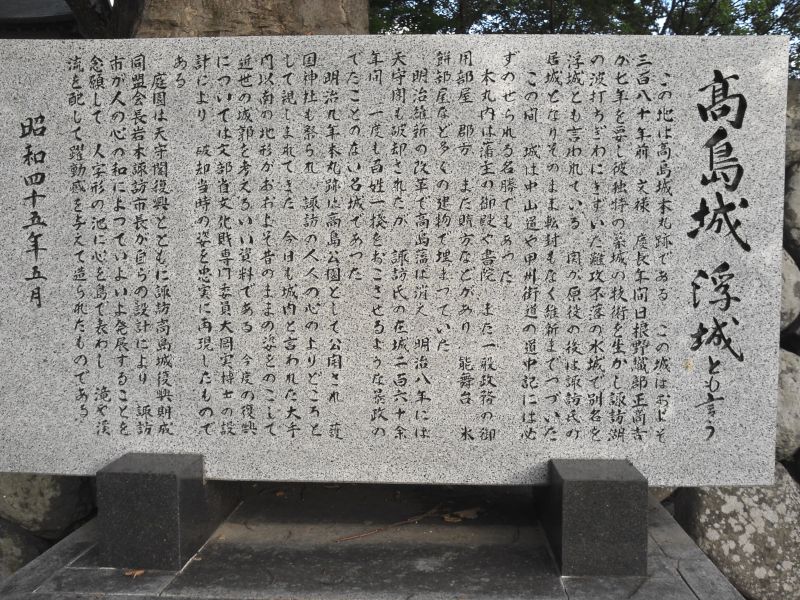 高島城 浮城とも言う
この地は高島城本丸跡である この城はおよそ
三百八十年前 文禄 慶長年間日根野織部正高吉
が七年を要し彼独特の築城の技術を生かし諏訪湖
の波打ちぎわにきずいた難攻不落の水城で別名を
浮城とも言われている 関が原役の後は諏訪氏の
居城となりそのまま転封もなく維新までつづいた
この間 城は中山道や甲州街道の道中記には必
ずのせられる名勝でもあつた
本丸内は藩主の御殿や書院 また一般政務の御
用部屋 郡方 また賄方などがあり 能舞台 氷
餅部屋など多くの建物で埋まつていた
明治維新の改革で高島藩は消え 明治八年には
天守閣も破却されたが 諏訪氏の在城二百六十余
年間 一度も百姓一揆をおこさせるような苛政の
でたことのない名城であつた
明治九年本丸跡は高島公園として公開され 護
国神社も祭られ 諏訪の人人の心のよりどころと
して親しまれてきた 今日も城内と言われた大手
門以南の地形がおおよそ昔のままの姿をのこして
近世の城郭を考えるいい資料である 今度の復興
については文部省文化財専門委員大岡実博士の設
計により 破却当時の姿を忠実に再現したもので
ある
庭園は天守閣復興とともに諏訪高島城復興期成
同盟会長岩本諏訪市長が自らの設計により 諏訪
市が人の心の和によつていよいよ発展することを
念願して 人字形の池に心を島で表わし 滝や渓
流を配して躍動感を与えて造られたものである
昭和四十五年五月